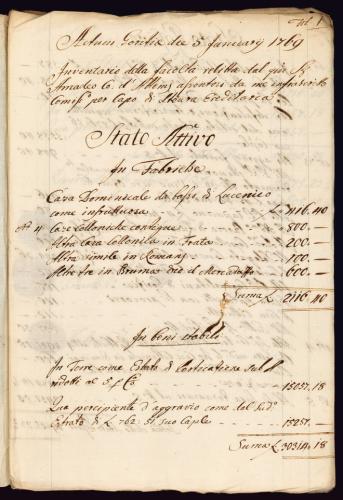 fol. 1
Actum Goritia die 5 January 1769
Inventario della facoltà relitta dal qm Sr
Amadeo C. d'Attems apprentosi da me infrascritto
Comisso per Capo di Ibara Ereditaria
Stato Attivo
In Fabriche
Casa Dominicale da basso di Lucinico
come infruttuosa £ 416.40
No 4 Case Colloniche contigue 800.—
Altra Casa Collonica in Prato 200.—
Altra simile in 100.—
Altre tre in Bruma 600.—
Suma £ 2116.40
In beni stabili
In Terre come Estratto di Certificatione sub A
ridotti al 5 p Cto 15057.18
Qua percipiente d'aggravio come dal sudo
Estrato di £ 762 suo Caple 15257.—
Suma £ 30314.18